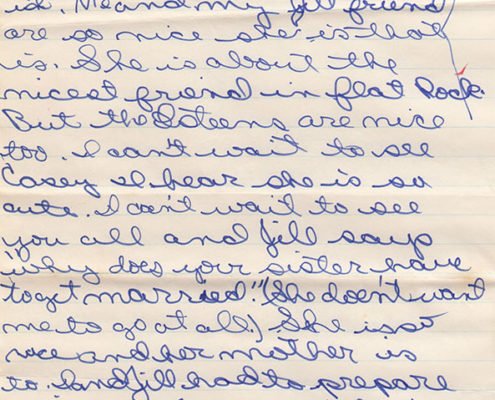 id. Me and my Jill friend
are so nice she is that
is. She is about the
nicest friend in flat Rock.
But the Osteens are nice
too. I can't wait to see
Casey I hear she is so
cute. I can't wait to see
you all and Jill says
"why does your sister have
to get married." (She doen't want
me to go at all.) She is so
nice and her mother is
to. I and Jill had to prepare